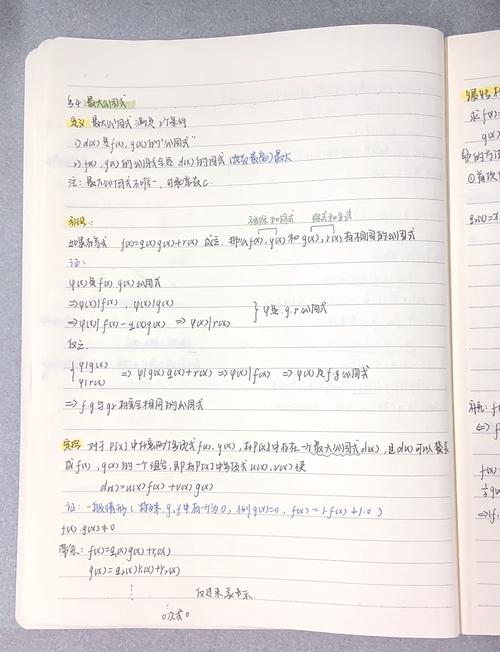 §4 最大公因式
定义 最大公因式 满足 2个条件
1) d(x) 是 f(x), g(x) 的"公因式"
2) f(x), g(x) 的公因式全是 d(x) 的因式 (次数最高) 最大
注: 最大公因式不唯一, 可乘常数 C.
被除式和除式 除式和余式
引理: 如果有等式 f(x)=q(x)g(x)+r(x) 成立, 那么 f(x), g(x) 和 g(x), r(x) 有相同的公因式
证:
φ(x) 是 f(x) g(x) 公因式
⇒ φ(x)|f(x) , φ(x)|g(x)
⇒ φ(x)|f(x)-q(x)g(x) ⇒ φ(x)|r(x)
} φ是 g.r 公因式
反之:
{ φ|g(x)
φ|r(x) ⇒ φ|g(x)q(x)+r(x) ⇒ φ(x)|f(x) ⇒ φ(x) 是 f.g 公因式
⇒ f.g 与 g.r 有完全相同的公因式
定理: 对于 P[x] 中任意两个多项式 f(x), g(x), 在P[x]中存在一个最大公因式 d(x), 且 d(x) 可以表
成 f(x), g(x) 的一个组合, 即有P[x]中多项式 u(x), v(x) 使
d(x)=u(x)f(x)+v(x)g(x)
证: 一般情形 ( 特殊 g,f中有一个为0, g(x)=0, f(x)=1·f(x)+1·0 )
f(x).g(x)≠0
带余: f(x)=q₁(x)g(x)+r₁(x)
g(x)=q₂(x)r₁(x)+r₂(x)
⋮ 反过来表示
0次或0
最
求 f(x)=
g(x)
①
f(x)
⇒ f